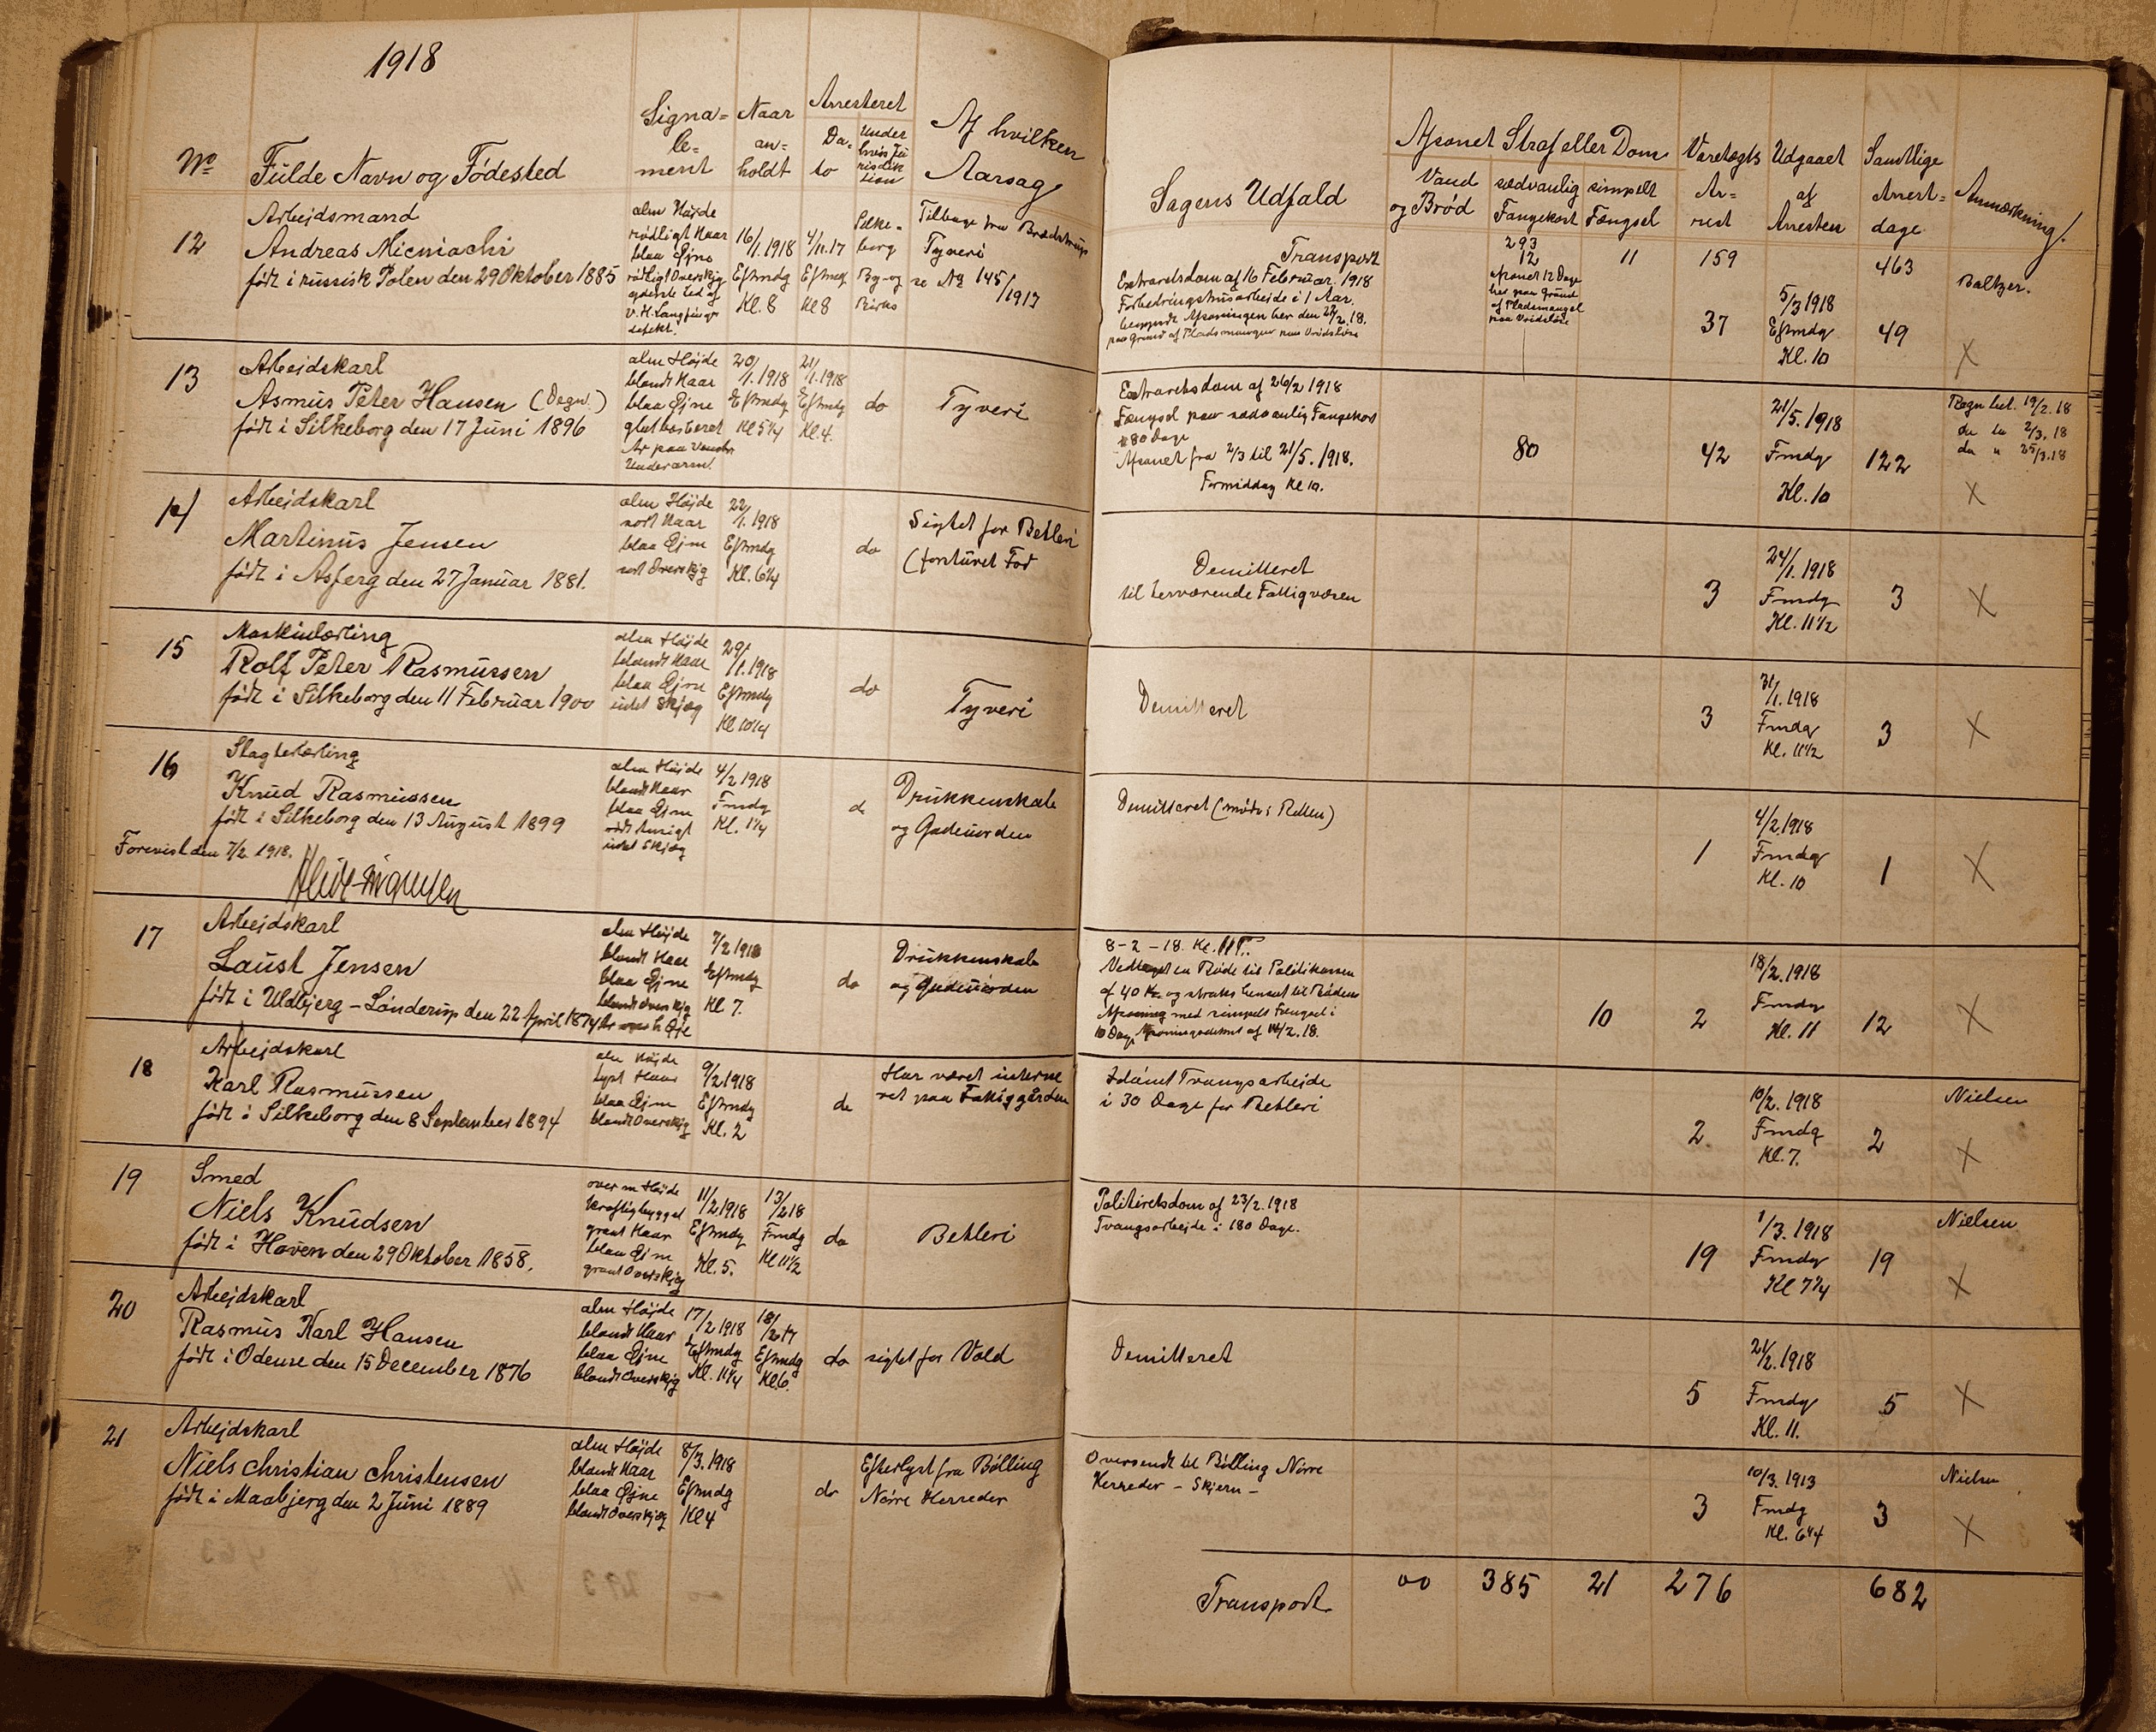 1918
No
Fulde Navn og Fødested
Signa=
le=
ment
Naar
an=
holdt
Arresteret
Da=
to
Under
hvis Ju
risdik
tion
Af hvilken
Aarsag
12
Arbejdsmand
Andreas Micniachi
født i russisk Polen den 29 Oktober 1885
alm Højde
rødligt Haar
blaa Øjne
rødligt Overskjg
yderste Led af
v. H. Langfinger
defekt.
16/1. 1918
Eftmdg
Kl. 8
4/11. 17
Eftmdg
Kl 8
Silke=
borg
By- og
Birks
Tilbage fra Brædstrup
Tyveri
se No 145/1917
13
Arbejdskarl
Asmus Peter Hansen (Degn.)
født i Silkeborg den 17 Juni 1896
alm Højde
blondt Haar
blaa Øjne
glat barberet
Ar paa venstre
Underarm.
20/1. 1918
Eftmdg
Kl 5 1/4
21/1. 1918
Eftmdg
Kl. 4.
do
Tyveri
14
Arbejdskarl
Martinus Jensen
født i Asferg den 27 Januar 1881.
alm Højde
sort Haar
blaa Øjne
sort Overskjg
22/1. 1918
Eftmdg
Kl. 6 1/4
do
Sigtet for Betleri
(forstuvet Fod
15
Maskinlærling
Rolf Peter Rasmussen
født i Silkeborg den 11 Februar 1900
alm Højde
blondt Haar
blaa Øjne
intet Skjæg
29/1. 1918
Eftmdg
Kl 10 1/4
do
Tyveri
16
Slagterlærling
Knud Rasmussen
født i Silkeborg den 13 August 1899
alm Højde
blondt Haar
blaa Øjne
rødt Ansigt
intet Skjæg
4/2. 1918
Fmdg
Kl. 1 1/4
do
Drukkenskab
og Gadeuorden
Forevist den 7/2. 1918.
17
Arbejdskarl
Laust Jensen
født i Uldbjerg - Lønderup den 22 April 1874
alm Højde
blondt Haar
blaa Øjne
blondt Overskjg
7/2 1918
Eftmdg
Kl 7.
do
Drukkenskab
og Gadeuorden
18
Arbejdskarl
Karl Rasmussen
født i Silkeborg den 8 September 1894
alm Højde
lyst Haar
blaa Øjne
blondt Overskjg
9/2 1918
Eftmdg
Kl. 2
do
Har været interne
ret paa Fattiggården
19
Smed
Niels Knudsen
født i Hoven den 29 Oktober 1858.
over m Højde
kraftig bygget
graat Haar
blaa Øjne
graat Overskjg
11/2 1918
Eftmdg
Kl. 5.
13/2 18
Fmdg
Kl 11 1/2
do
Betleri
20
Arbejdskarl
Rasmus Karl Hansen
født i Odense den 15 December 1876
alm Højde
blondt Haar
blaa Øjne
blondt Overskjg
17/2 1918
Eftmdg
Kl. 11 1/4
18/2 17
Eftmdg
Kl 6.
do
sigtet for Vold
21
Arbejdskarl
Niels Christian Christensen
født i Maabjerg den 2 Juni 1889
alm Højde
blondt Haar
blaa Øjne
blondt Overskjæg
8/3. 1918
Eftmdg
Kl 4
do
Efterlyst fra Bølling
Nørre Herreder
Sagens Udfald
Afsonet Straf eller Dom
Vand
og Brød
sædvanlig
Fangekost
simpelt
Fængsel
Varetægts
Ar=
rest
Udgaaet
af
Arresten
Samtlige
Arrest=
dage
Anmærkning.
Transport
293
11
159
463
Extraretsdom af 16 Februar. 1918
Forbedringshusarbejde i 1 Aar.
begyndt Afsoningen her den 21/2. 18.
paa Grund af Pladsmangel paa Vridsløse
12
Afsonet 12 Dage
her paa Grund
af Pladsmangel
paa Vridsløse
37
5/3 1918
Eftmdg
Kl. 10
49
Baltzer.
X
Extraretsdom af 26/2 1918
Fængsel paa sædvanlig Fangekost
i 80 Dage
Afsonet fra 2/3 til 21/5. 1918.
Formiddag Kl 10.
80
42
21/5. 1918
Fmdg
Kl. 10
122
Regn bet. 19/2. 18
do to 2/3. 18
do " 25/3. 18
X
Demitteret
til herværende Fattigvæsen
3
24/1. 1918
Fmdg
Kl. 11 1/2
3
X
Demitteret
3
31/1. 1918
Fmdg
Kl. 11 1/2
3
X
Demitteret (møde i Retten)
1
4/2. 1918
Fmdg
Kl. 10
1
X
8-2-18. Kl.
Vedtaget en Bøde til Politikassen
af 40 Kr. og straks hensat til Bødens
Afsoning med simpelt Fængsel i
10 Dage
10
2
18/2. 1918
Fmdg
Kl. 11
12
X
Idømt Tvangsarbejde
i 30 Dage for Betleri
2
10/2. 1918
Fmdg
Kl. 7.
2
Nielsen
X
Politiretsdom af 23/2. 1918
Tvangsarbejde i 180 Dage.
19
1/3. 1918
Fmdg
Kl 7 3/4
19
Nielsen
X
Demitteret
5
21/2. 1918
Fmdg
Kl. 11.
5
X
Oversendt til Bølling Nørre
Herreder - Skjern -
3
10/3. 1913
Fmdg
Kl. 6 1/4
3
Nielsen
X
Transport
00
385
21
276
682